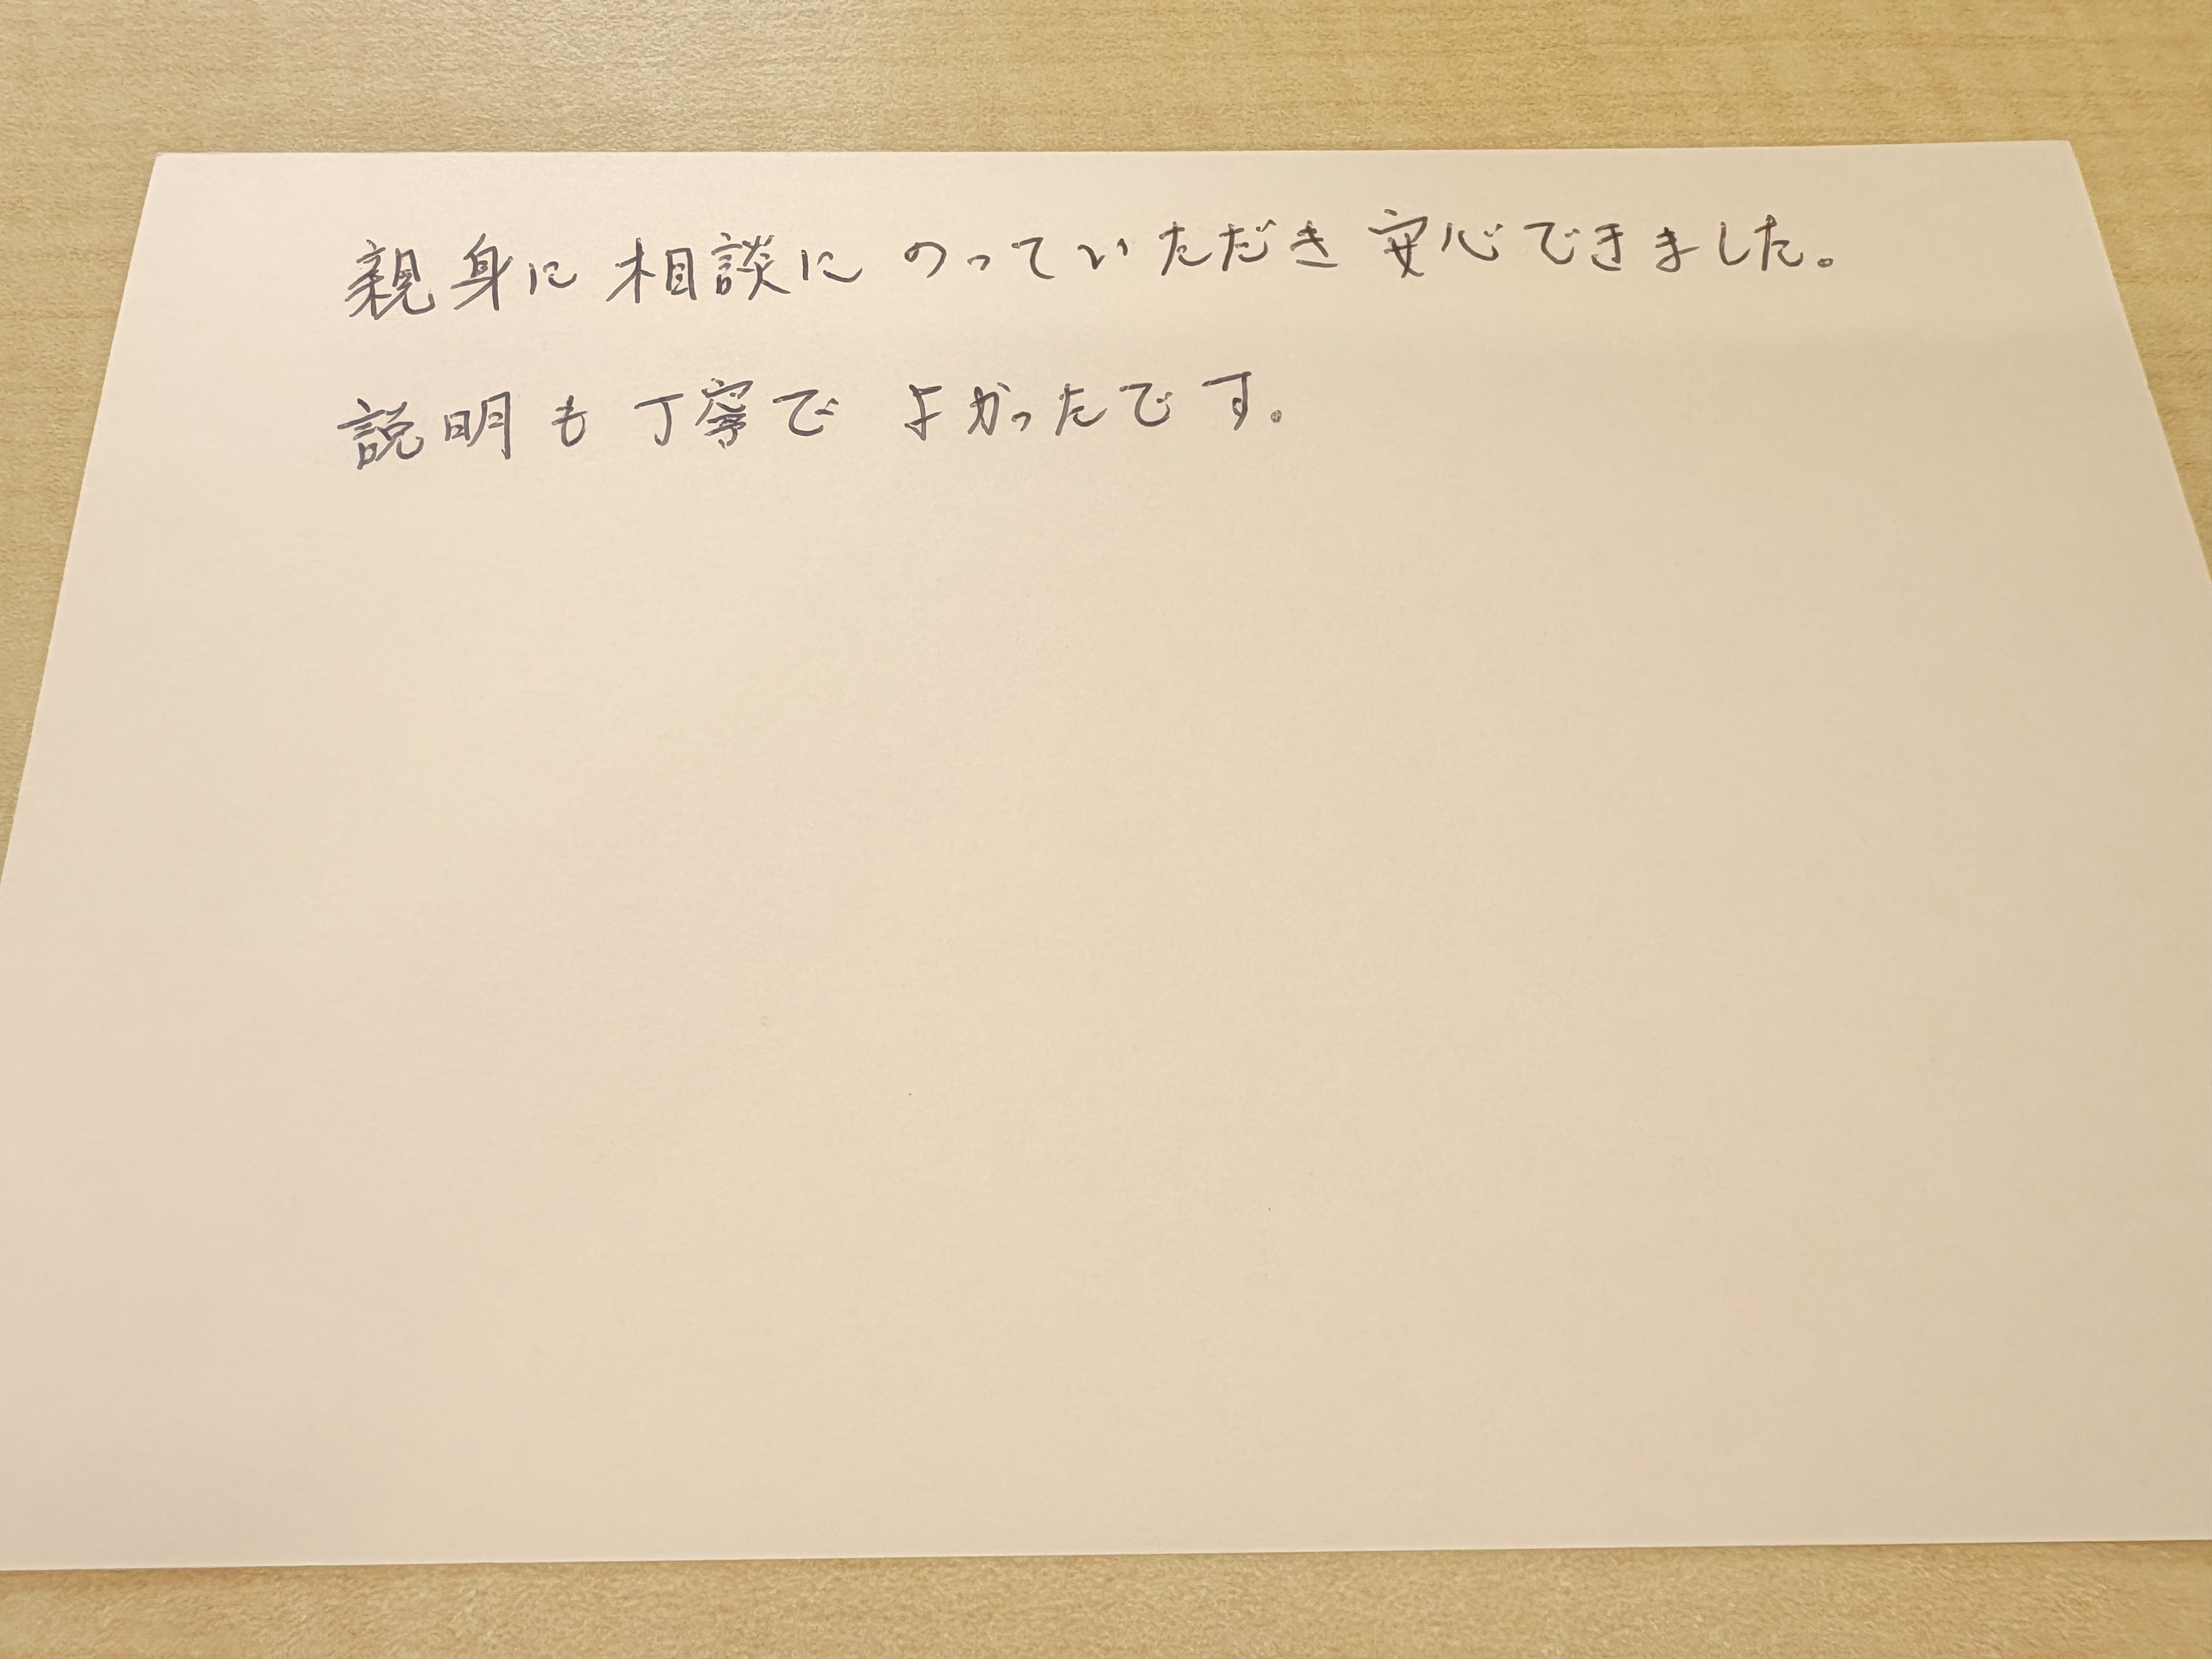 親身に相談にのっていただき安心できました。
説明も丁寧でよかったです。